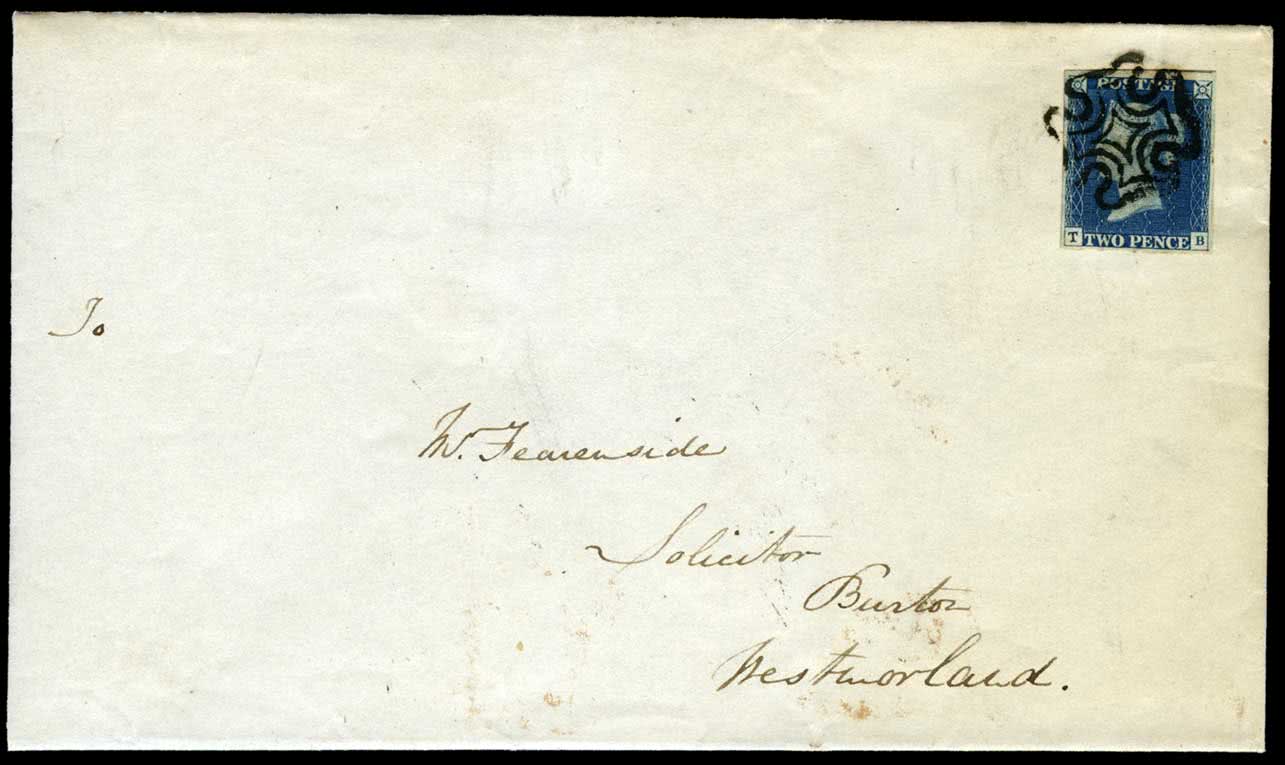 POSTAGE
T TWO PENCE B
To
Mr. Fearenside
Solicitor
Burton
Westmorland.